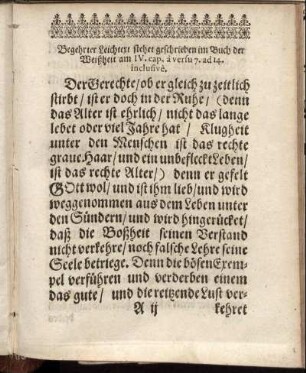 Begehrter Leichtext stehet geschrieben im Buch der
Weißheit am IV. cap. à versu 7. ad 14.
inclusivè.
Der Gerechte / ob er gleich zu zeitlich
stirbt / ist er doch in der Ruhe / (denn
das Alter ist ehrlich / nicht das lange
lebet oder viel Jahre hat / Klugheit
unter den Menschen ist das rechte
graue Haar / und ein unbefleckt Leben /
ist das rechte Alter /) denn er gefelt
GOtt wol / und ist ihm lieb / und wird
weggenommen aus dem Leben unter
den Sündern / und wird hingerücket /
daß die Boßheit seinen Verstand
nicht verkehre / noch falsche Lehre seine
Seele betriege. Denn die bösen Exem-
pel verführen und verderben einem
das gute / und die reitzende Lust ver-
A ij kehret